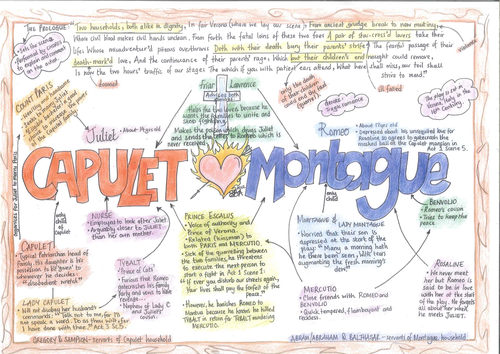 THE PROLOGUE: "Two households, both alike in dignity, In fair Verona (where we lay our scene), From ancient grudge break to new mutiny,
Where civil blood makes civil hands unclean. From forth the fatal loins of these two foes A pair of star-cross'd lovers take their
life: Whose misadventur'd piteous overthrows Doth with their death bury their parents' strife. The fearful passage of their
death-mark'd love, And the continuance of their parents' rage, Which but their children's end nought could remove,
Is now the two hours' traffic of our stage. The which if you with patient ears attend, What here shall miss, our toil shall
strive to mend."
Sets the scene
Performed by chorus to
explain and comment
on the action
doomed
ill-fated
Genre: Tragic romance
The play is set in
Verona, Italy in the
COUNT PARIS
Friar Lawrence
Advises both
Helps the two lovers because he
wants the families to unite and
stop fighting.
Makes the potion which drugs Juliet
and sends the letter to Romeo which is
never received.
Juliet
- About 14yrs old
Romeo
- About 17yrs old
- Depressed about his unrequited love for
Rosaline so agrees to gatecrash the
masked ball at the Capulet mansion in
Act 1 Scene 5.
CAPULET
Montague
only
child
of
Capulet
only
child
BENVOLIO
- Romeo's cousin
- Tries to keep the
peace
NURSE
- Employed to look after Juliet
- Arguably closer to JULIET
than her own mother.
PRINCE ESCALUS
- Voice of authority and
Prince of Verona.
- Related (kinsman) to
both PARIS and MERCUTIO.
- Sick of the quarrelling between
the two families, he threatens
to execute the next person to
start a fight in Act 3 Scene 1:
"If ever you disturb our streets again,
Your lives shall pay the forfeit of the
peace."
- However, he banishes Romeo to
Mantua because he knows he killed
TYBALT in return for TYBALT murdering
MERCUTIO.
MONTAGUE &
LADY MONTAGUE
- Worried that their son is
depressed at the start of the
play: "Many a morning hath
he there been seen, With tears
augmenting the fresh morning's
dew!"
CAPULET
- Typical Patriarchal head of
family. His daughter is his
possession to be 'given' to
whomever he chooses.
TYBALT
- 'Prince of Cats'
- Furious that Romeo
gatecrashes his family
party and vows to
take revenge.
- Nephew of LADY C
and Juliet's
cousin.
ROSALINE
- We never meet
her but Romeo
is said to be in love
with her at the start
of the play. He forgets
all about her when he
meets JULIET.
MERCUTIO
- Close friends with ROMEO and
BENVOLIO
- Quick-tempered, flamboyant
and reckless.
LADY CAPULET
- Will not disobey her husband's
commands: "Talk not to me, for I'll
not speak a word. Do as thou wilt, for
I have done with thee." Act 3 Sc5.
GREGORY & SAMPSON - servants of Capulet household
ABRAM/ABRAHAM & BALTHASAR - servants of Montague household